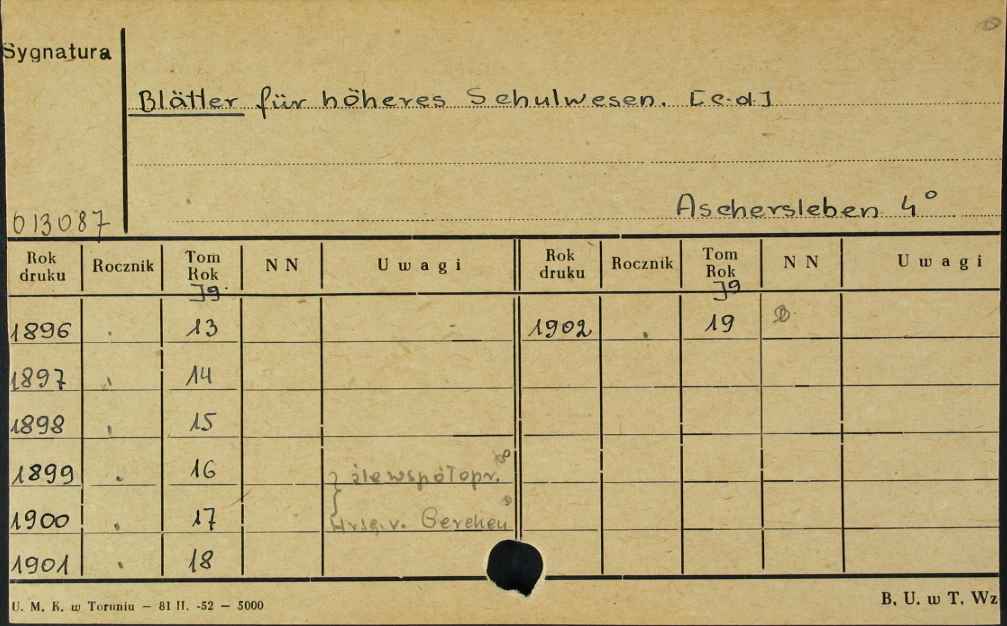 Sygnatura
Blätter für höheres Schulwesen. [c.d.]
Aschersleben 4°
013087
Rok druku Rocznik Tom Rok Jg. N N Uwagi Rok druku Rocznik Tom Rok Jg N N Uwagi
1896 . 13 1902 . 19
1897 . 14
1898 . 15
1899 . 16 źle współopr.
1900 . 17 Hrsg. v.
1901 . 18
U. M. K. w Toruniu – 81 II. -52 – 5000
B. U. w T. Wz